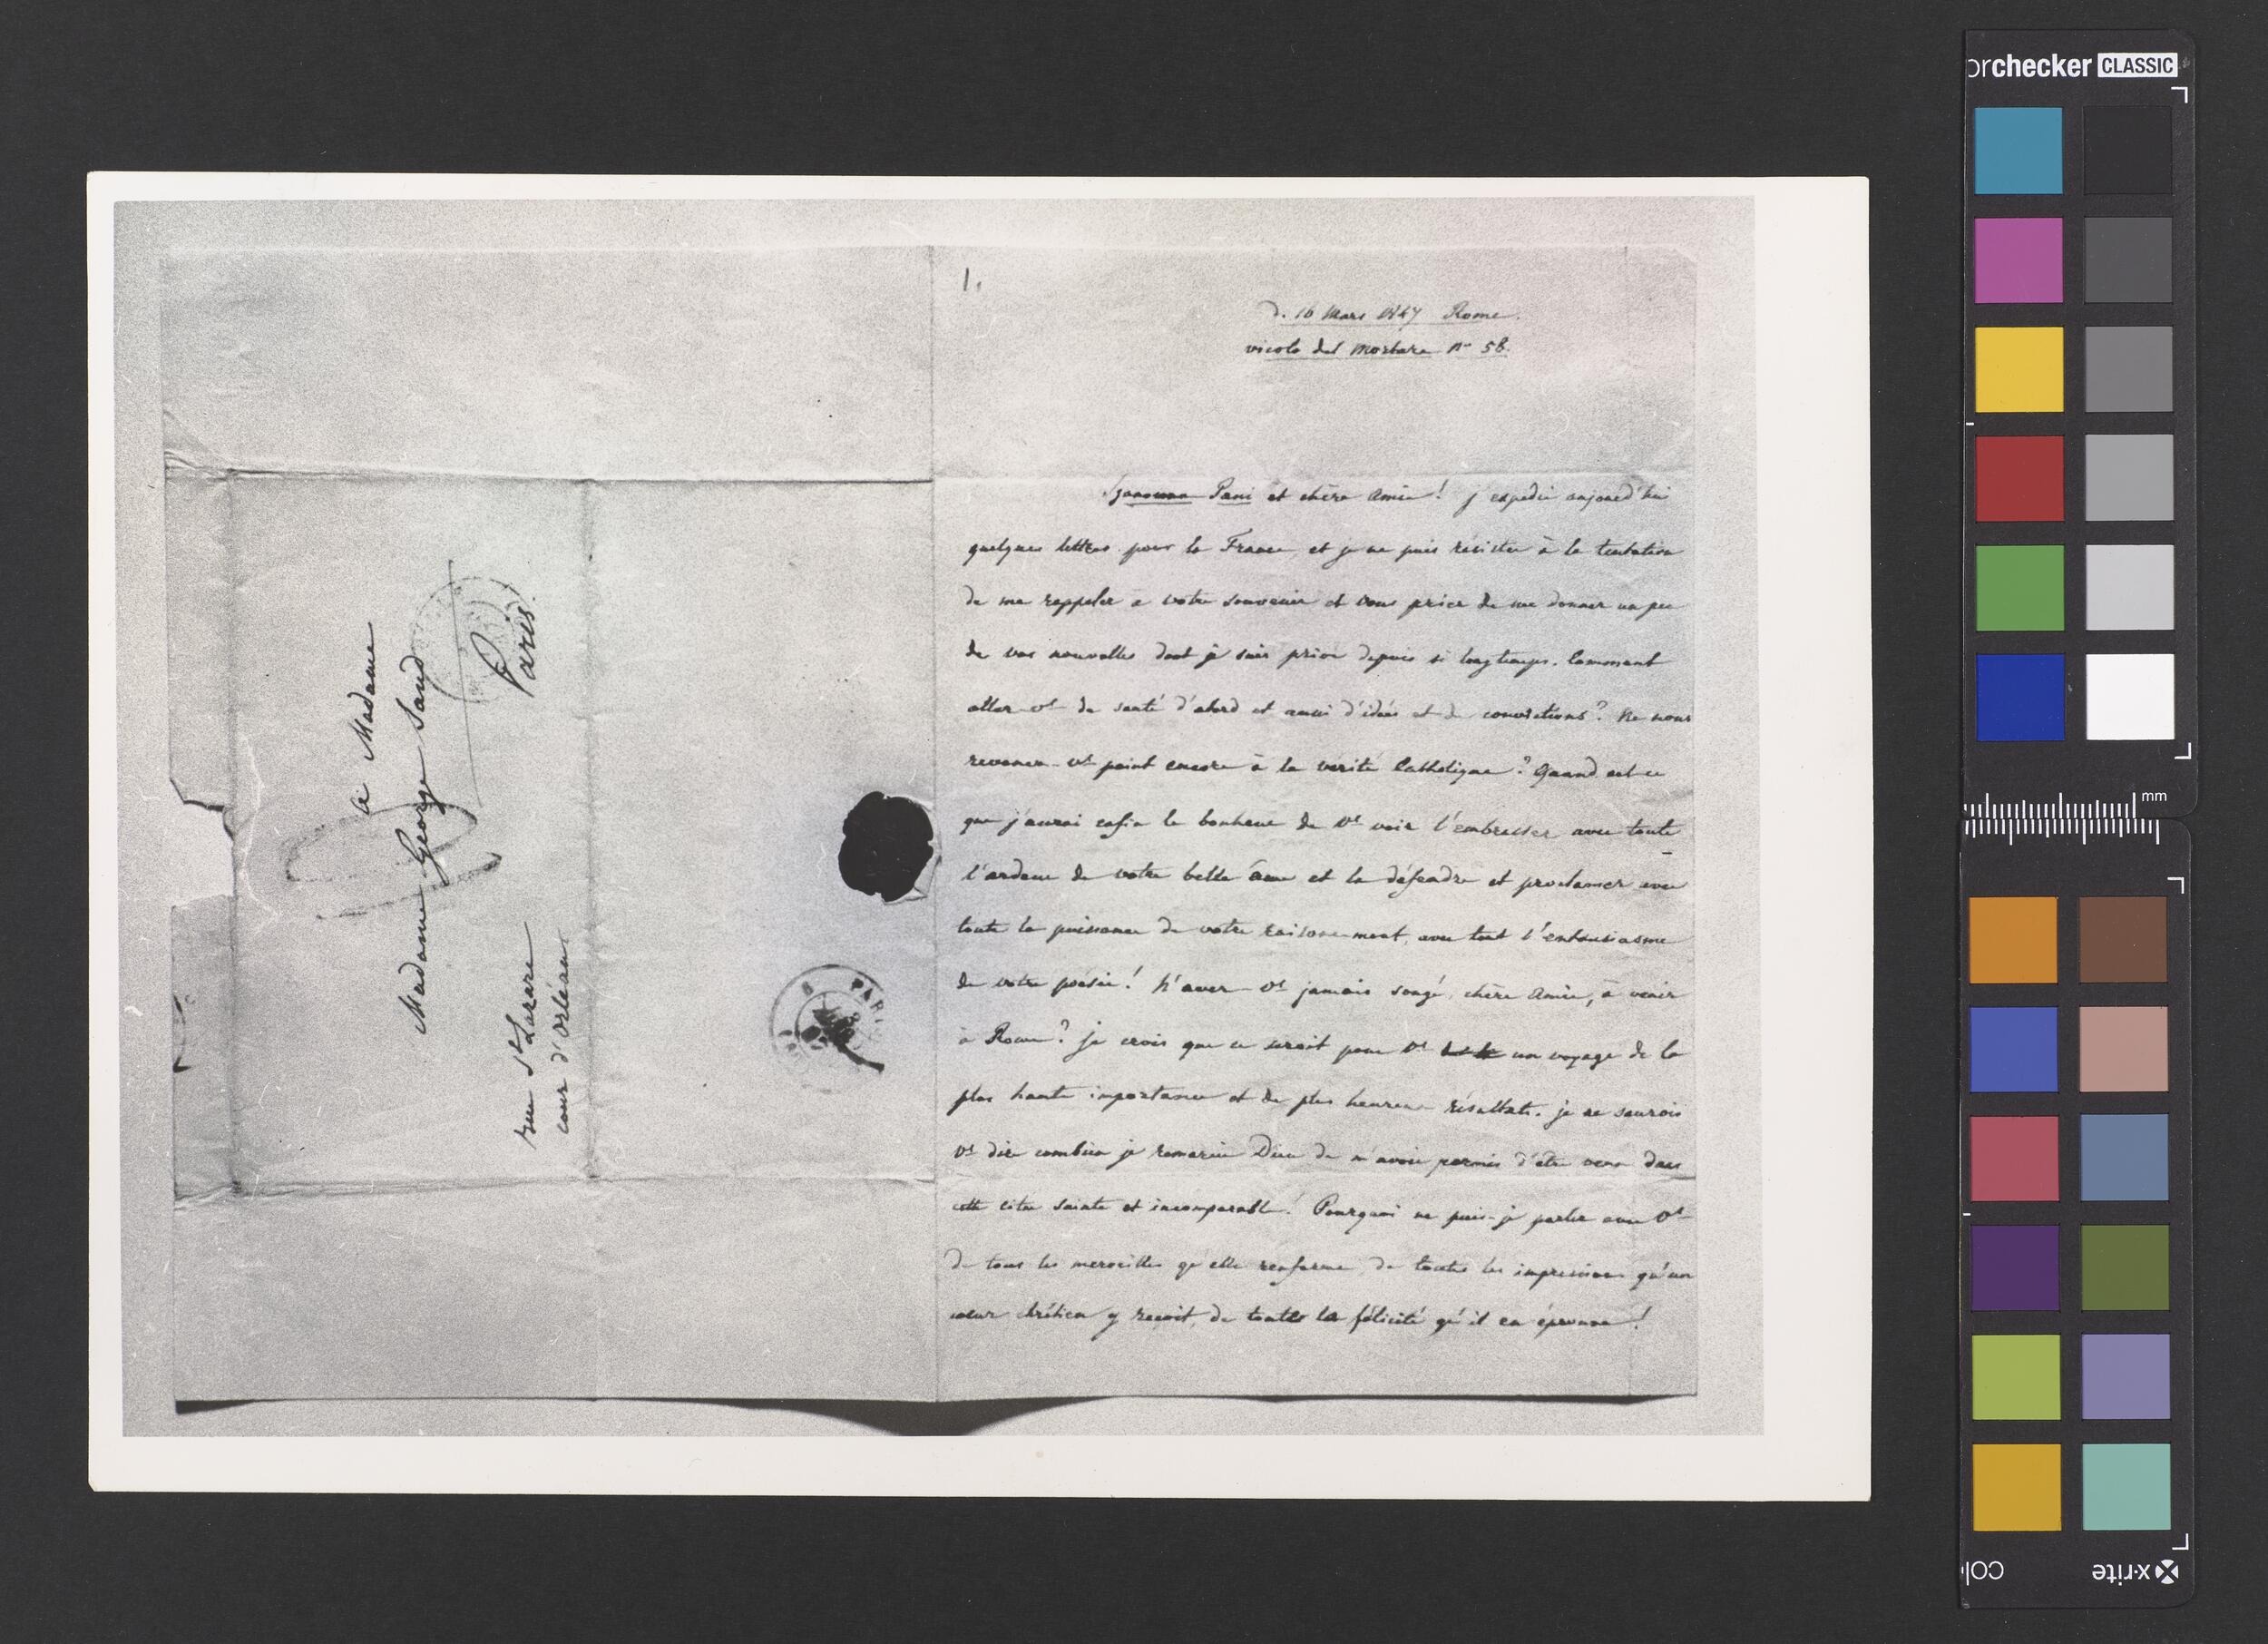 à Madame
Madame George Sand
Paris.
rue St Lazare
cour d'Orléans
PARIS
1.
d. 16 Mars 1847 Rome.
vicolo del Mortaro No 58.
Szanowna Pani et chère Amie! j'expédie aujourd'hui
quelques lettres pour la France, et je ne puis résister à la tentation
de me rappeler à votre souvenir et vous prier de me donner un peu
de vos nouvelles dont je suis privé depuis si longtemps. Comment
allez-vs de santé d'abord et aussi d'idées et de convictions? Ne nous
revenez-vs point encore à la vérité Catholique? Quand est-ce
que j'aurai enfin le bonheur de vs voir l'embrasser avec toute
l'ardeur de votre belle âme et la défendre et proclamer avec
toute la puissance de votre raisonement, avec tout l'entousiasme
de votre poésie! N'avez-vs jamais songé, chère Amie, à venir
à Rome? je crois que ce serait pour vs un voyage de la
plus haute importance et de plus heureux résultats. je ne saurois
vs dire combien je remercie Dieu de m'avoir permis d'être venu dans
cette citée sainte et incomparable! Pourquoi ne puis-je parler avec vs
de tous les merveilles qu'elle renferme, de toutes les impressions qu'un
cœur chrétien y reçoit, de toutes la félicité qu'il en éprouve!
orchecker CLASSIC
mm
x-rite
col